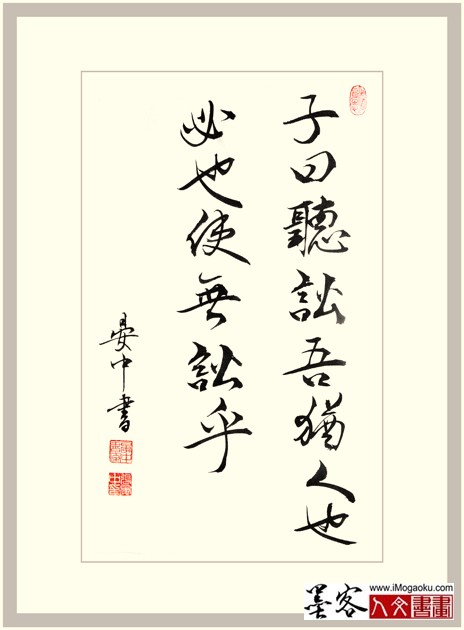 子曰聽訟吾猶人也
必也使無訟乎
晏中書
www.iMogaoku.com
墨客
人文書畫